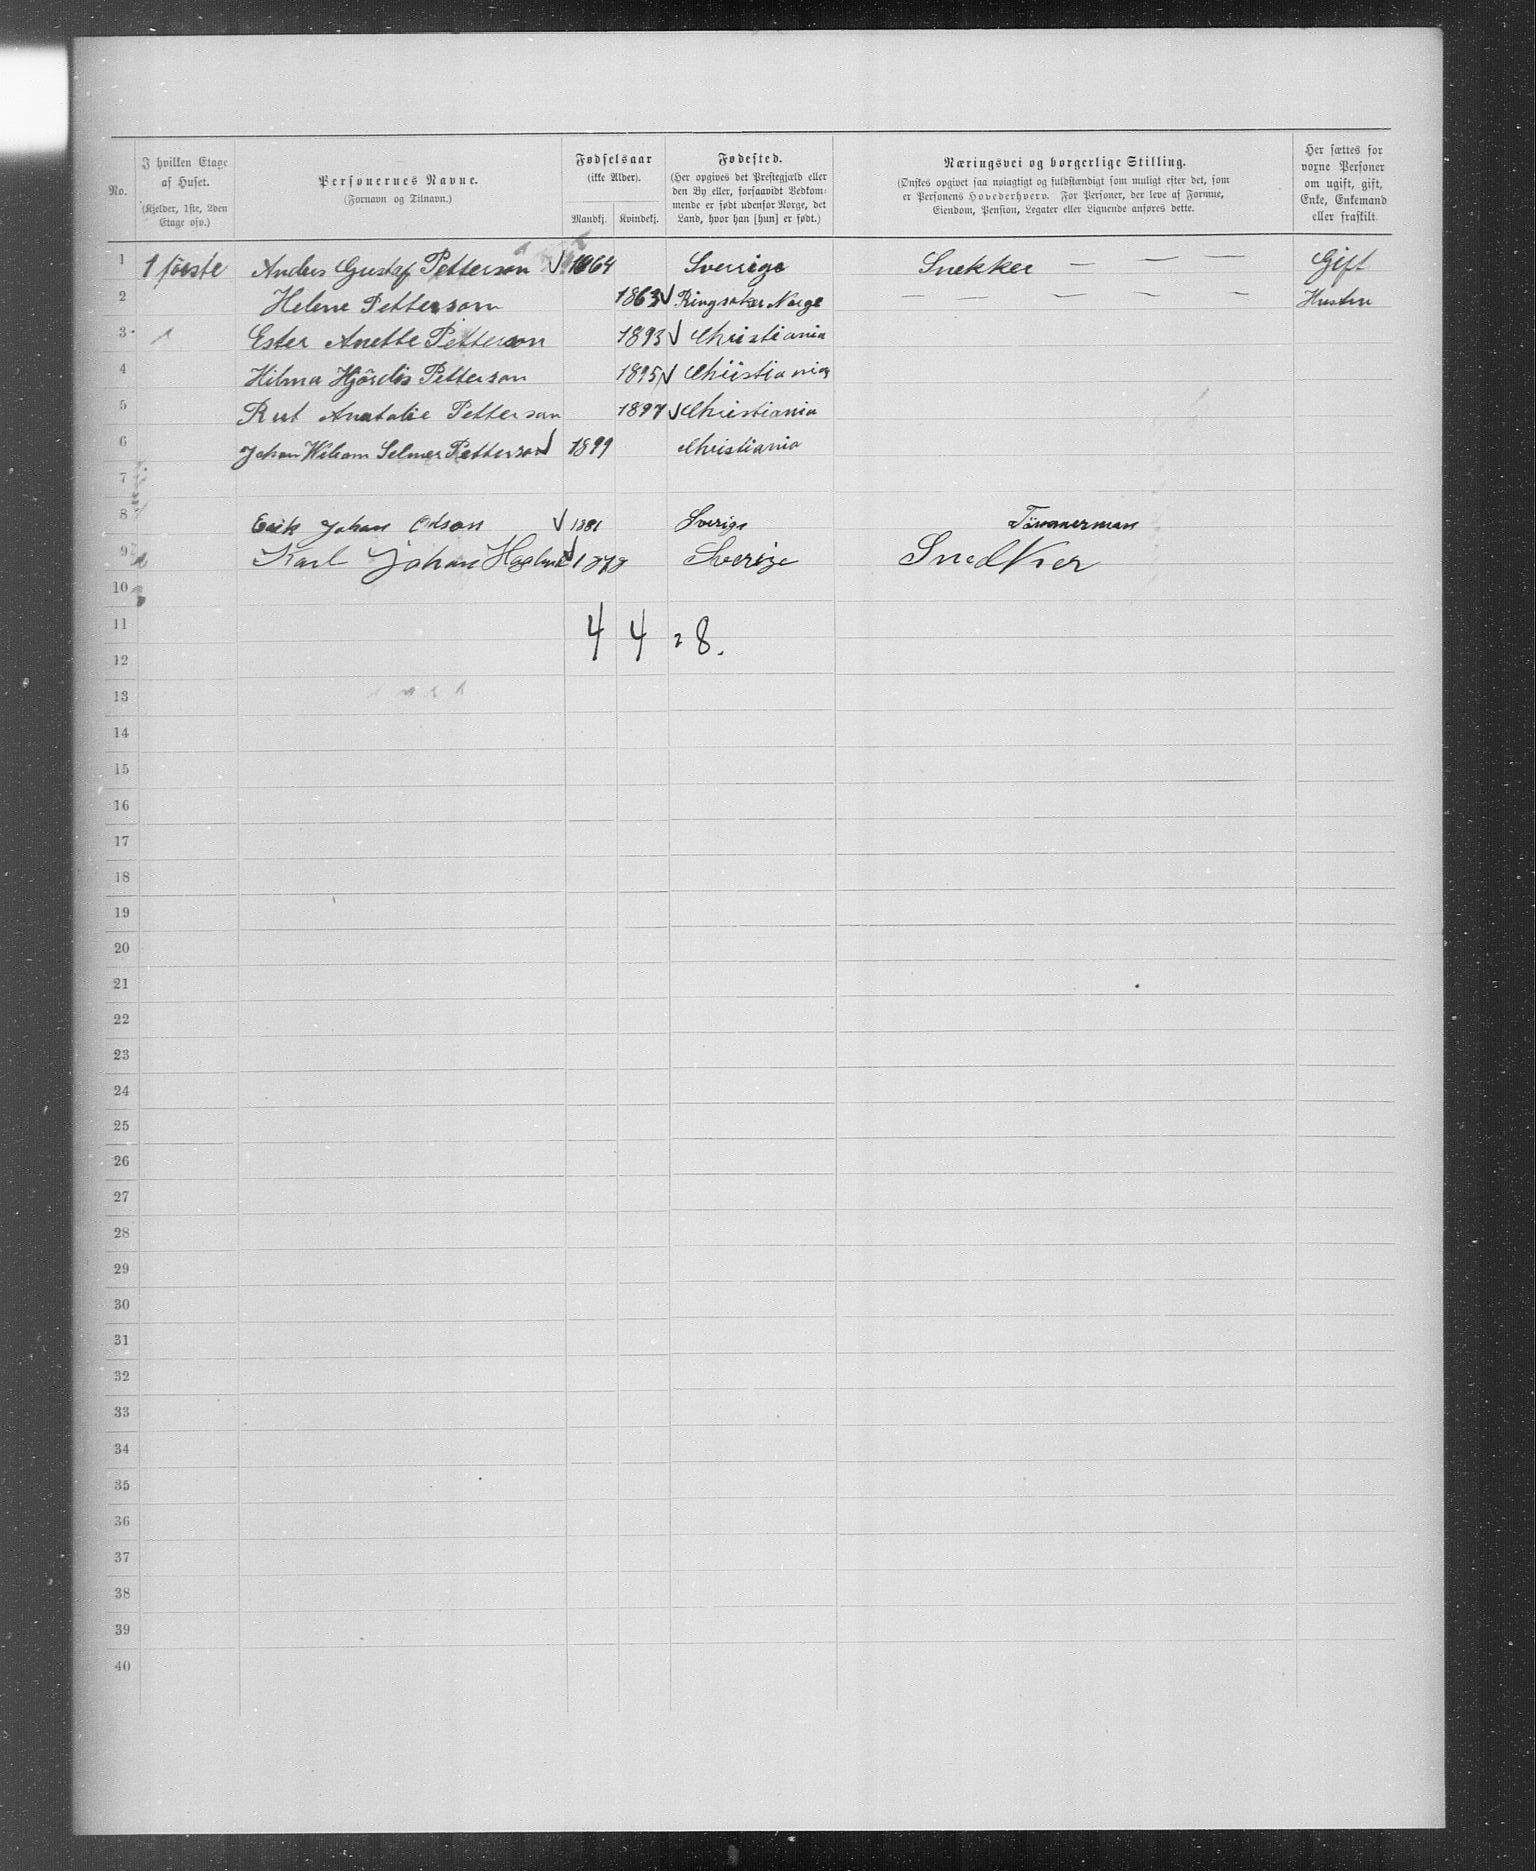 No.
I hvilken Etage af Huset.
(Kjelder, 1ste, 2den Etage osv.)
Personernes Navne.
(Fornavn og Tilnavn.)
Fødselsaar
(ikke Alder).
Mandkj. Kvindekj.
Fødested.
(Her opgives det Prestegjæld eller
den By eller, forsaavidt Vedkom-
mende er født udenfor Norge, det
Land, hvor han [hun] er født.)
Næringsvei og borgerlige Stilling.
(Ønskes opgivet saa nøiagtigt og fuldstændigt som muligt efter det, som
er Personens Hovederhverv. For Personer, der leve af Formue,
Eiendom, Pension, Legater eller Lignende anføres dette.
Her sættes for
voxne Personer
om ugift, gift,
Enke, Enkemand
eller fraskilt.
1 1 förste Anders Gustaf Petterson √ 1864 Sverrige Snekker — — — Gift
2 Helene Petterson 1863 √ Ringsaker Norge — — — — — Hustru
3 Ester Anette Petterson 1893 √ Christiania
4 Hilma Hjördis Petterson 1895 √ Christiania
5 Rut Anatalie Petterson 1897 √ Christiania
6 Johan Wiliam Selmer Petterson √ 1899 Christiania
7
8 Erik Johan Olson √ 1881 Sverige Tömmerman
9 Karl Johan Haglund √ 1878 Sverige Snedker
10
11 4 4 = 8.
12
13
14
15
16
17
18
19
20
21
22
23
24
25
26
27
28
29
30
31
32
33
34
35
36
37
38
39
40